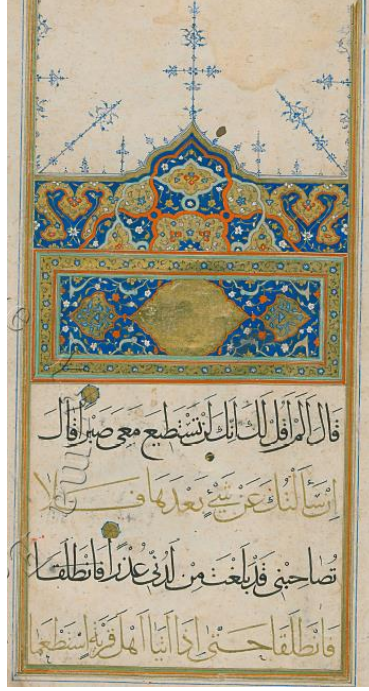 قَالَ اَلَمْ اَقُلْ لَكَ اِنَّكَ لَنْ تَسْتَطِيعَ مَعِيَ صَبْرًا قَالَ
اِنْ سَاَلْتُكَ عَنْ شَيْءٍ بَعْدَهَا فَلَا
تُصَاحِبْنِى قَدْ بَلَغْتَ مِنْ لَدُنِّى عُذْرًا فَانْطَلَقَا
فَانْطَلَقَا حَتَّى اِذَا اَتَيَا اَهْلَ قَرْيَةٍ اِسْتَطْعَمَا